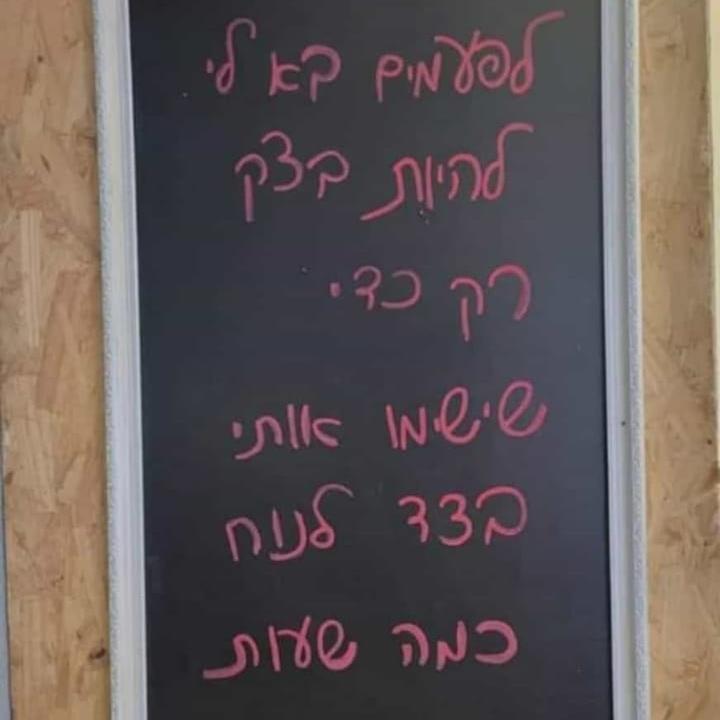 לפעמים בא לי
להיות בצק
רק כדי
שישימו אותי
בצד לנוח
כמה שעות